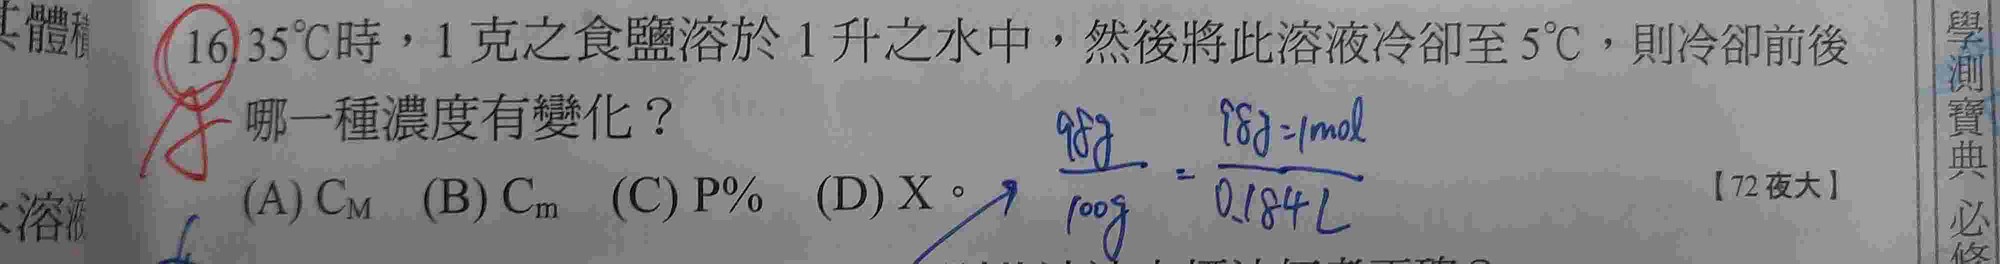 其體積
16. 35℃時，1 克之食鹽溶於 1 升之水中，然後將此溶液冷卻至 5℃，則冷卻前後
哪一種濃度有變化？
98g/100g = 98g=1mol/0.184L
(A) CM (B) Cm (C) P% (D) X。
【72 夜大】
溶液
學測寶典 必修